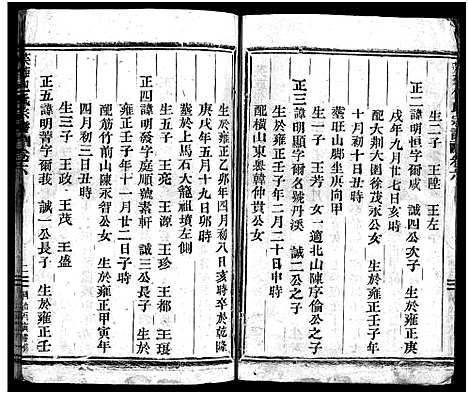 生二子　王陞　王左
正二諱明恒字爾咸　誠四公次子　生於雍正庚
戌年九月廿七日丑時
配大荆大園徐茂永公女　生於雍正壬子年
十月初十日丑時
塟莊山腳坐庚向甲
生一子　王芳　女一　適北山陳序倫公之子
正三諱明顯字爾名號丹溪　誠二公之子
生於雍正壬子年二月二十日申時
配橫山東皋韓仲貴公女
生於雍正乙卯年四月初八日亥時卒於乾隆
庚戌年五月十九日卯時
塟於上馬石大龍祖墳左側
生五子　王亮　王源　王珍　王都　王琨
正四諱明發字庭順號素軒　誠三公長子　生於
雍正壬子年十一月廿二日子時
配筋竹前山陳永智公女　生於雍正甲寅年
四月初三日丑時
生三子　王政　王茂　王盛
正五諱明亥字爾我　誠一公長子　生於雍正壬